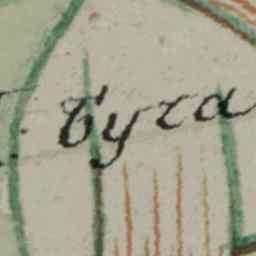 Г. Буга